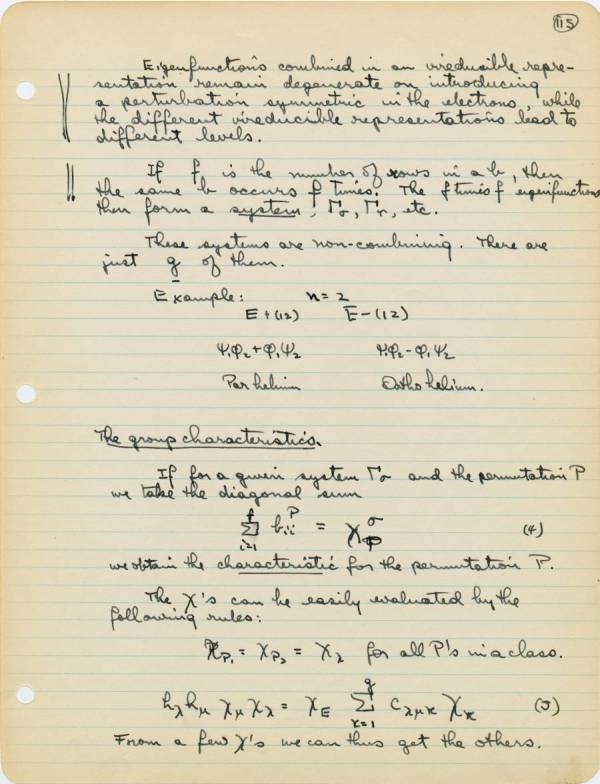 115
Eigenfunctions combined in an irreducible repre-
sentation remain degenerate on introducing
a perturbation symmetric in the electrons, while
the different irreducible representations lead to
different levels.
If f is the number of rows in a b, then
the same b occurs f times. The f times f eigenfunctions
then form a system, Γσ, Γτ, etc.
These systems are non-combining. There are
just g of them.
Example: n = 2
E + (12) E - (12)
Ψ₁Φ₂ + Φ₁Ψ₂ Ψ₁Φ₂ - Φ₁Ψ₂
Par helium Ortho helium.
The group characteristics.
If for a given system Γσ and the permutation P
we take the diagonal sum
f
Σ bᵢᵢᴾ = χ_P^σ (4)
i=1
we obtain the characteristic for the permutation P.
The χ's can be easily evaluated by the
following rules:
χ_P₁ = χ_P₂ = χ_λ for all P's in a class.
g
h_λ h_μ χ_μ χ_λ = χ_E Σ c_λμκ χ_κ (5)
κ=1
From a few χ's we can thus get the others.